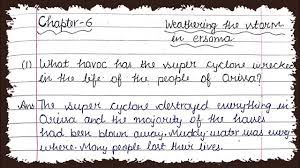 Chapter-6
Weathering the storm
in ersama
(1) What havoc has the super cyclone wrecked
in the life of the people of Orissa?
Ans The super cyclone destroyed everything in
Orissa and the majority of the houses
had been blown away. Muddy water was every
where. Many people lost their lives.